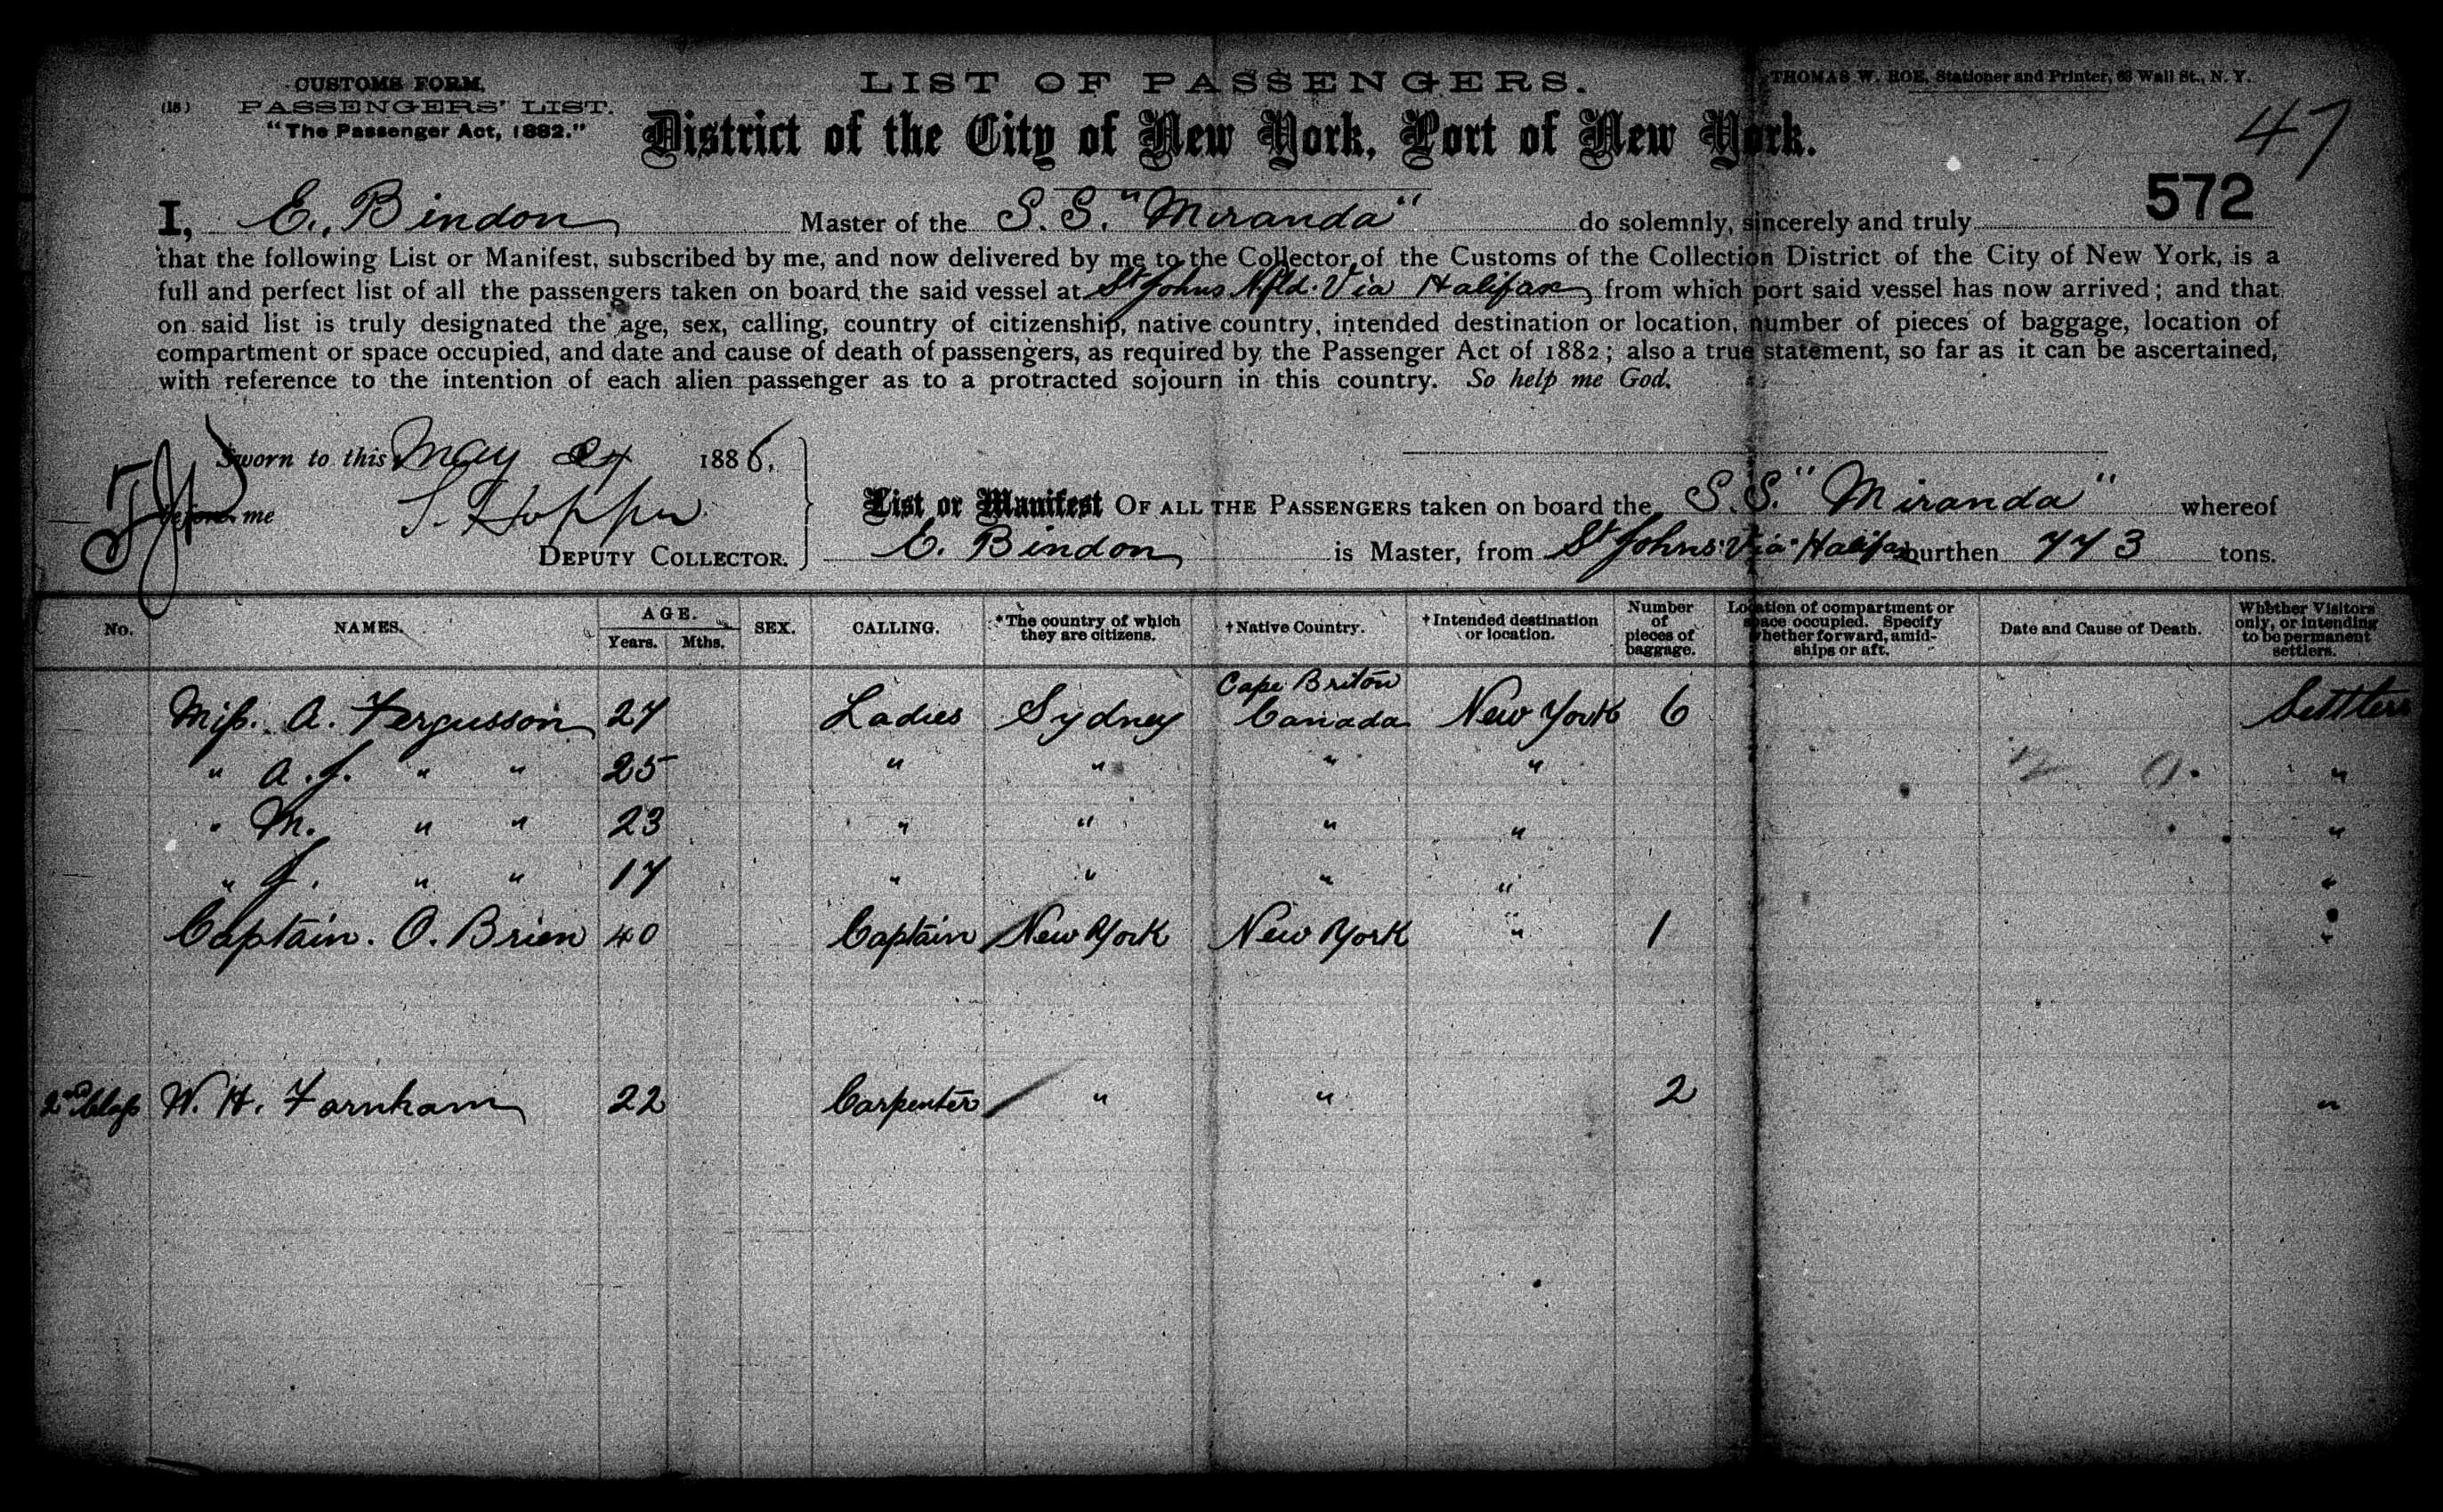 CUSTOMS FORM.
(18) PASSENGERS' LIST.
"The Passenger Act, 1882."
LIST OF PASSENGERS.
THOMAS W. ROE, Stationer and Printer, 63 Wall St., N. Y.
District of the City of New York, Port of New York.
47
572
I, E. Bindon Master of the S. S. "Miranda" do solemnly, sincerely and truly
that the following List or Manifest, subscribed by me, and now delivered by me to the Collector of the Customs of the Collection District of the City of New York, is a
full and perfect list of all the passengers taken on board the said vessel at St Johns Nfld. Via Halifax from which port said vessel has now arrived; and that
on said list is truly designated the age, sex, calling, country of citizenship, native country, intended destination or location, number of pieces of baggage, location of
compartment or space occupied, and date and cause of death of passengers, as required by the Passenger Act of 1882; also a true statement, so far as it can be ascertained,
with reference to the intention of each alien passenger as to a protracted sojourn in this country. So help me God.
Sworn to this May 24 1886.
before me
DEPUTY COLLECTOR.
List or Manifest OF ALL THE PASSENGERS taken on board the S. S. "Miranda" whereof
E. Bindon is Master, from St Johns Via Halifax burthen 773 tons.
No. NAMES. AGE. Years. Mths. SEX. CALLING. *The country of which they are citizens. †Native Country. †Intended destination or location. Number of pieces of baggage. Location of compartment or space occupied. Specify whether forward, amidships or aft. Date and Cause of Death. Whether Visitors only, or intending to be permanent settlers.
Miss. A. Fergusson 27 Ladies Sydney Cape Briton Canada New York 6 Settlers
" A. J. " " 25 " " " " "
" M. " " 23 " " " " "
" J. " " 17 " " " " "
Captain. O. Brien 40 Captain New York New York " 1 "
2nd Class W. H. Farnham 22 Carpenter " " 2 "